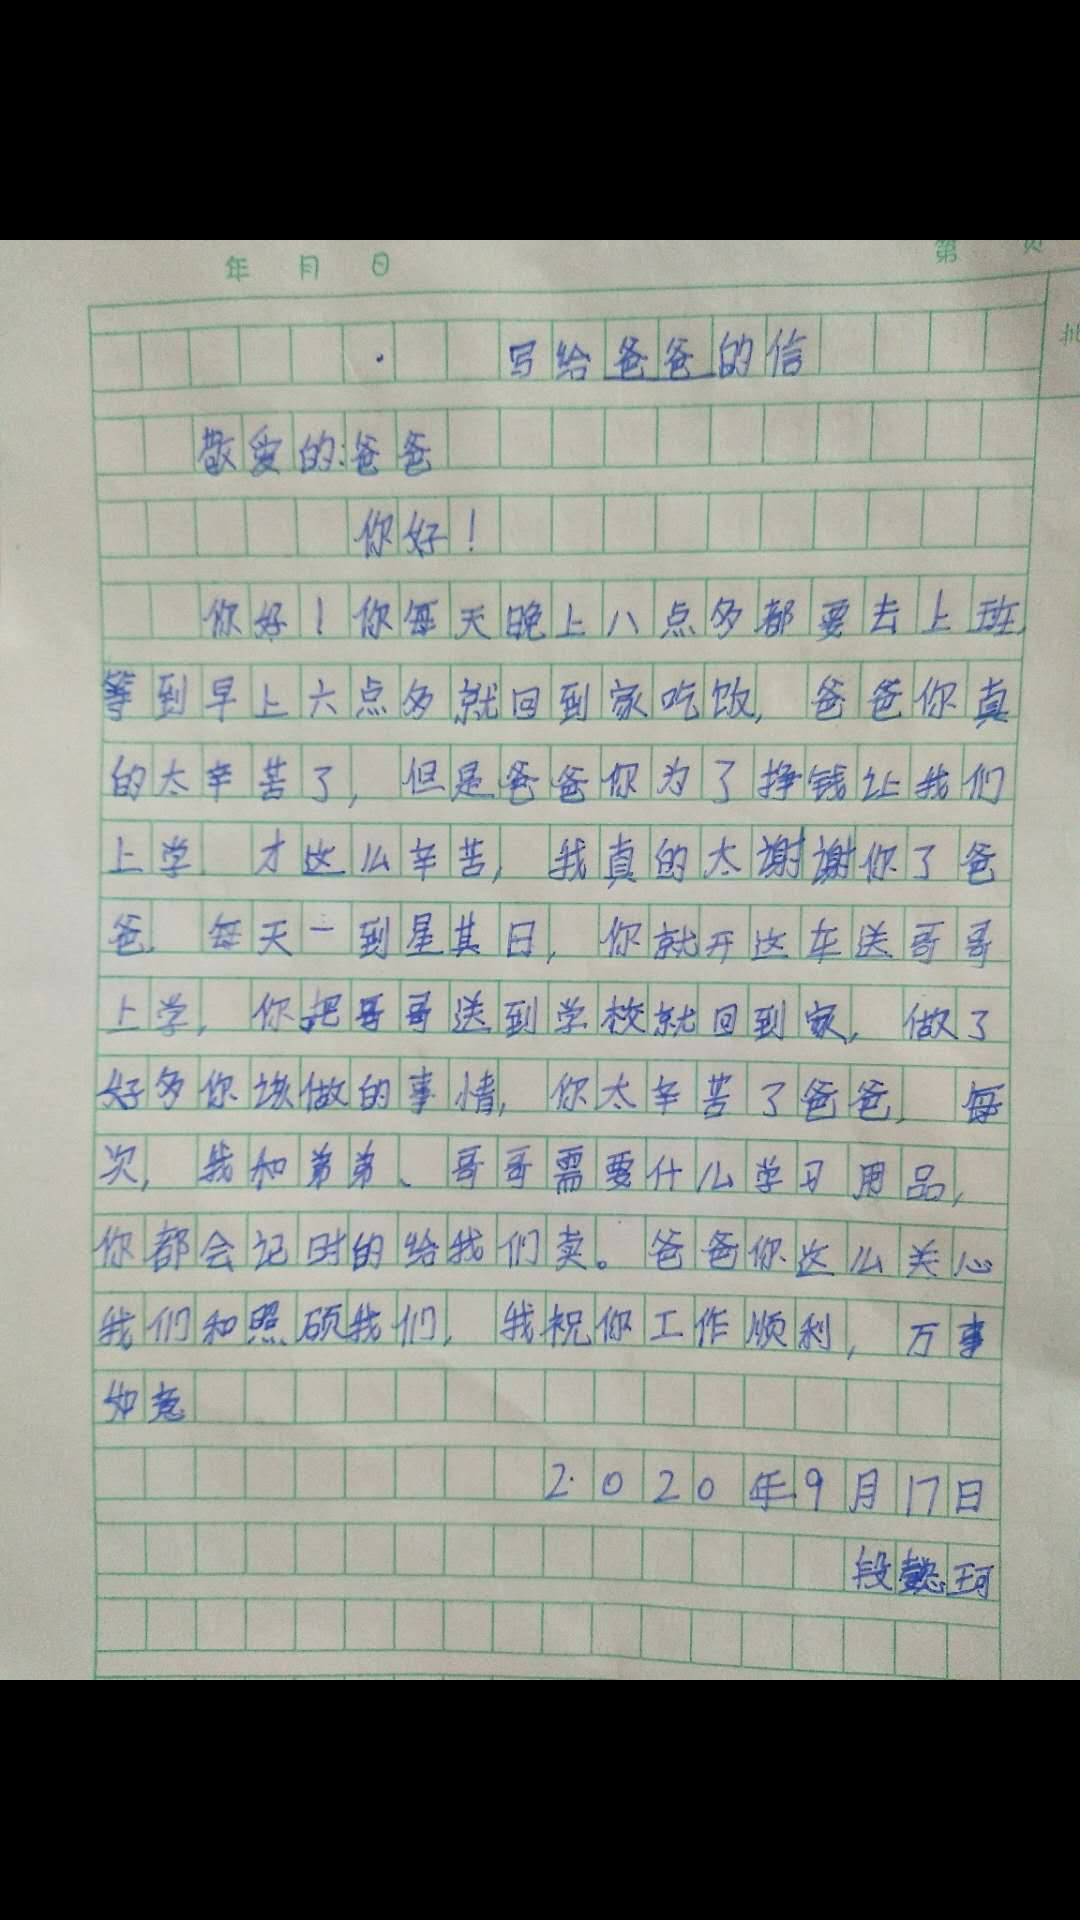 年 月 日 第 页
写给爸爸的信
敬爱的:爸爸
你好!
你好!你每天晚上八点多都要去上班,
等到早上六点多就回到家吃饭,爸爸你真
的太辛苦了,但是爸爸你为了挣钱让我们
上学 才这么辛苦,我真的太谢谢你了爸
爸,每天一到星其日,你就开这车送哥哥
上学,你把哥哥送到学校就回到家,做了
好多你该做的事情,你太辛苦了爸爸,每
次,我和弟弟、哥哥需要什么学习用品,
你都会记时的给我们卖。爸爸你这么关心
我们和照顾我们,我祝你工作顺利,万事
如意
2020年9月17日
段懿珂